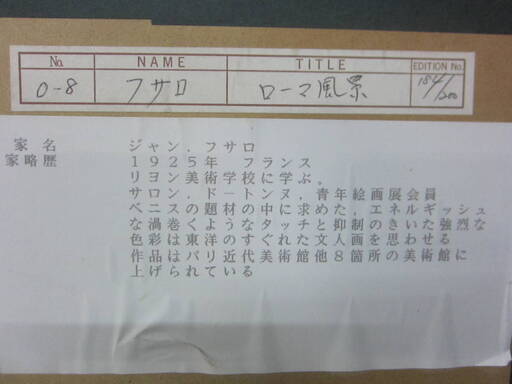 No. NAME TITLE EDITION No.
0-8 フサロ ローマ風景 184/200
家名 ジャン.フサロ
家略歴 1925年 フランス
リヨン美術学校に学ぶ。
サロン.ドートンヌ,青年絵画展会員
ベニスの題材の中に求めた,エネルギッシュ
な渦巻くようなタッチと抑制のきいた強烈な
色彩は東洋のすぐれた文人画を思わせる
作品はパリ近代美術館他8箇所の美術館に
上げられている